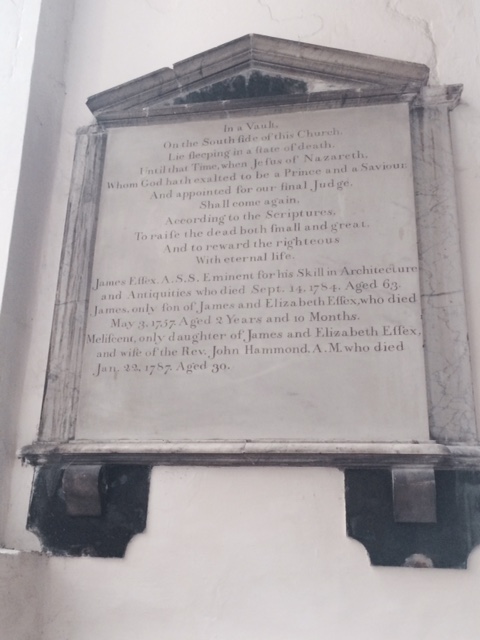 In a Vault,
On the South ſide of this Church,
Lie ſleeping in a ſtate of death,
Until that Time, when Jeſus of Nazareth,
Whom God hath exalted to be a Prince and a Saviour
And appointed for our final Judge,
Shall come again,
According to the Scriptures,
To raiſe the dead both ſmall and great,
And to reward the righteous
With eternal life.
James Eſſex, A.S.S. Eminent for his Skill in Architecture
and Antiquities who died Sept. 14, 1784. Aged 63.
James, only ſon of James and Elizabeth Eſſex, who died
May 3, 1757. Aged 2 Years and 10 Months.
Meliſcent, only daughter of James and Elizabeth Eſſex,
and wife of the Rev. John Hammond. A.M. who died
Jan. 22, 1787. Aged 30.